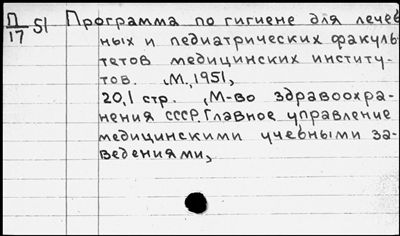 П/17 51 Программа по гигиене для лечеб
ных и педиатрических факуль
тетов медицинских институ-
тов. М., 1951,
20,1 стр. (М-во здравоохра-
нения СССР. Главное управление
медицинскими учебными за-
ведениями,